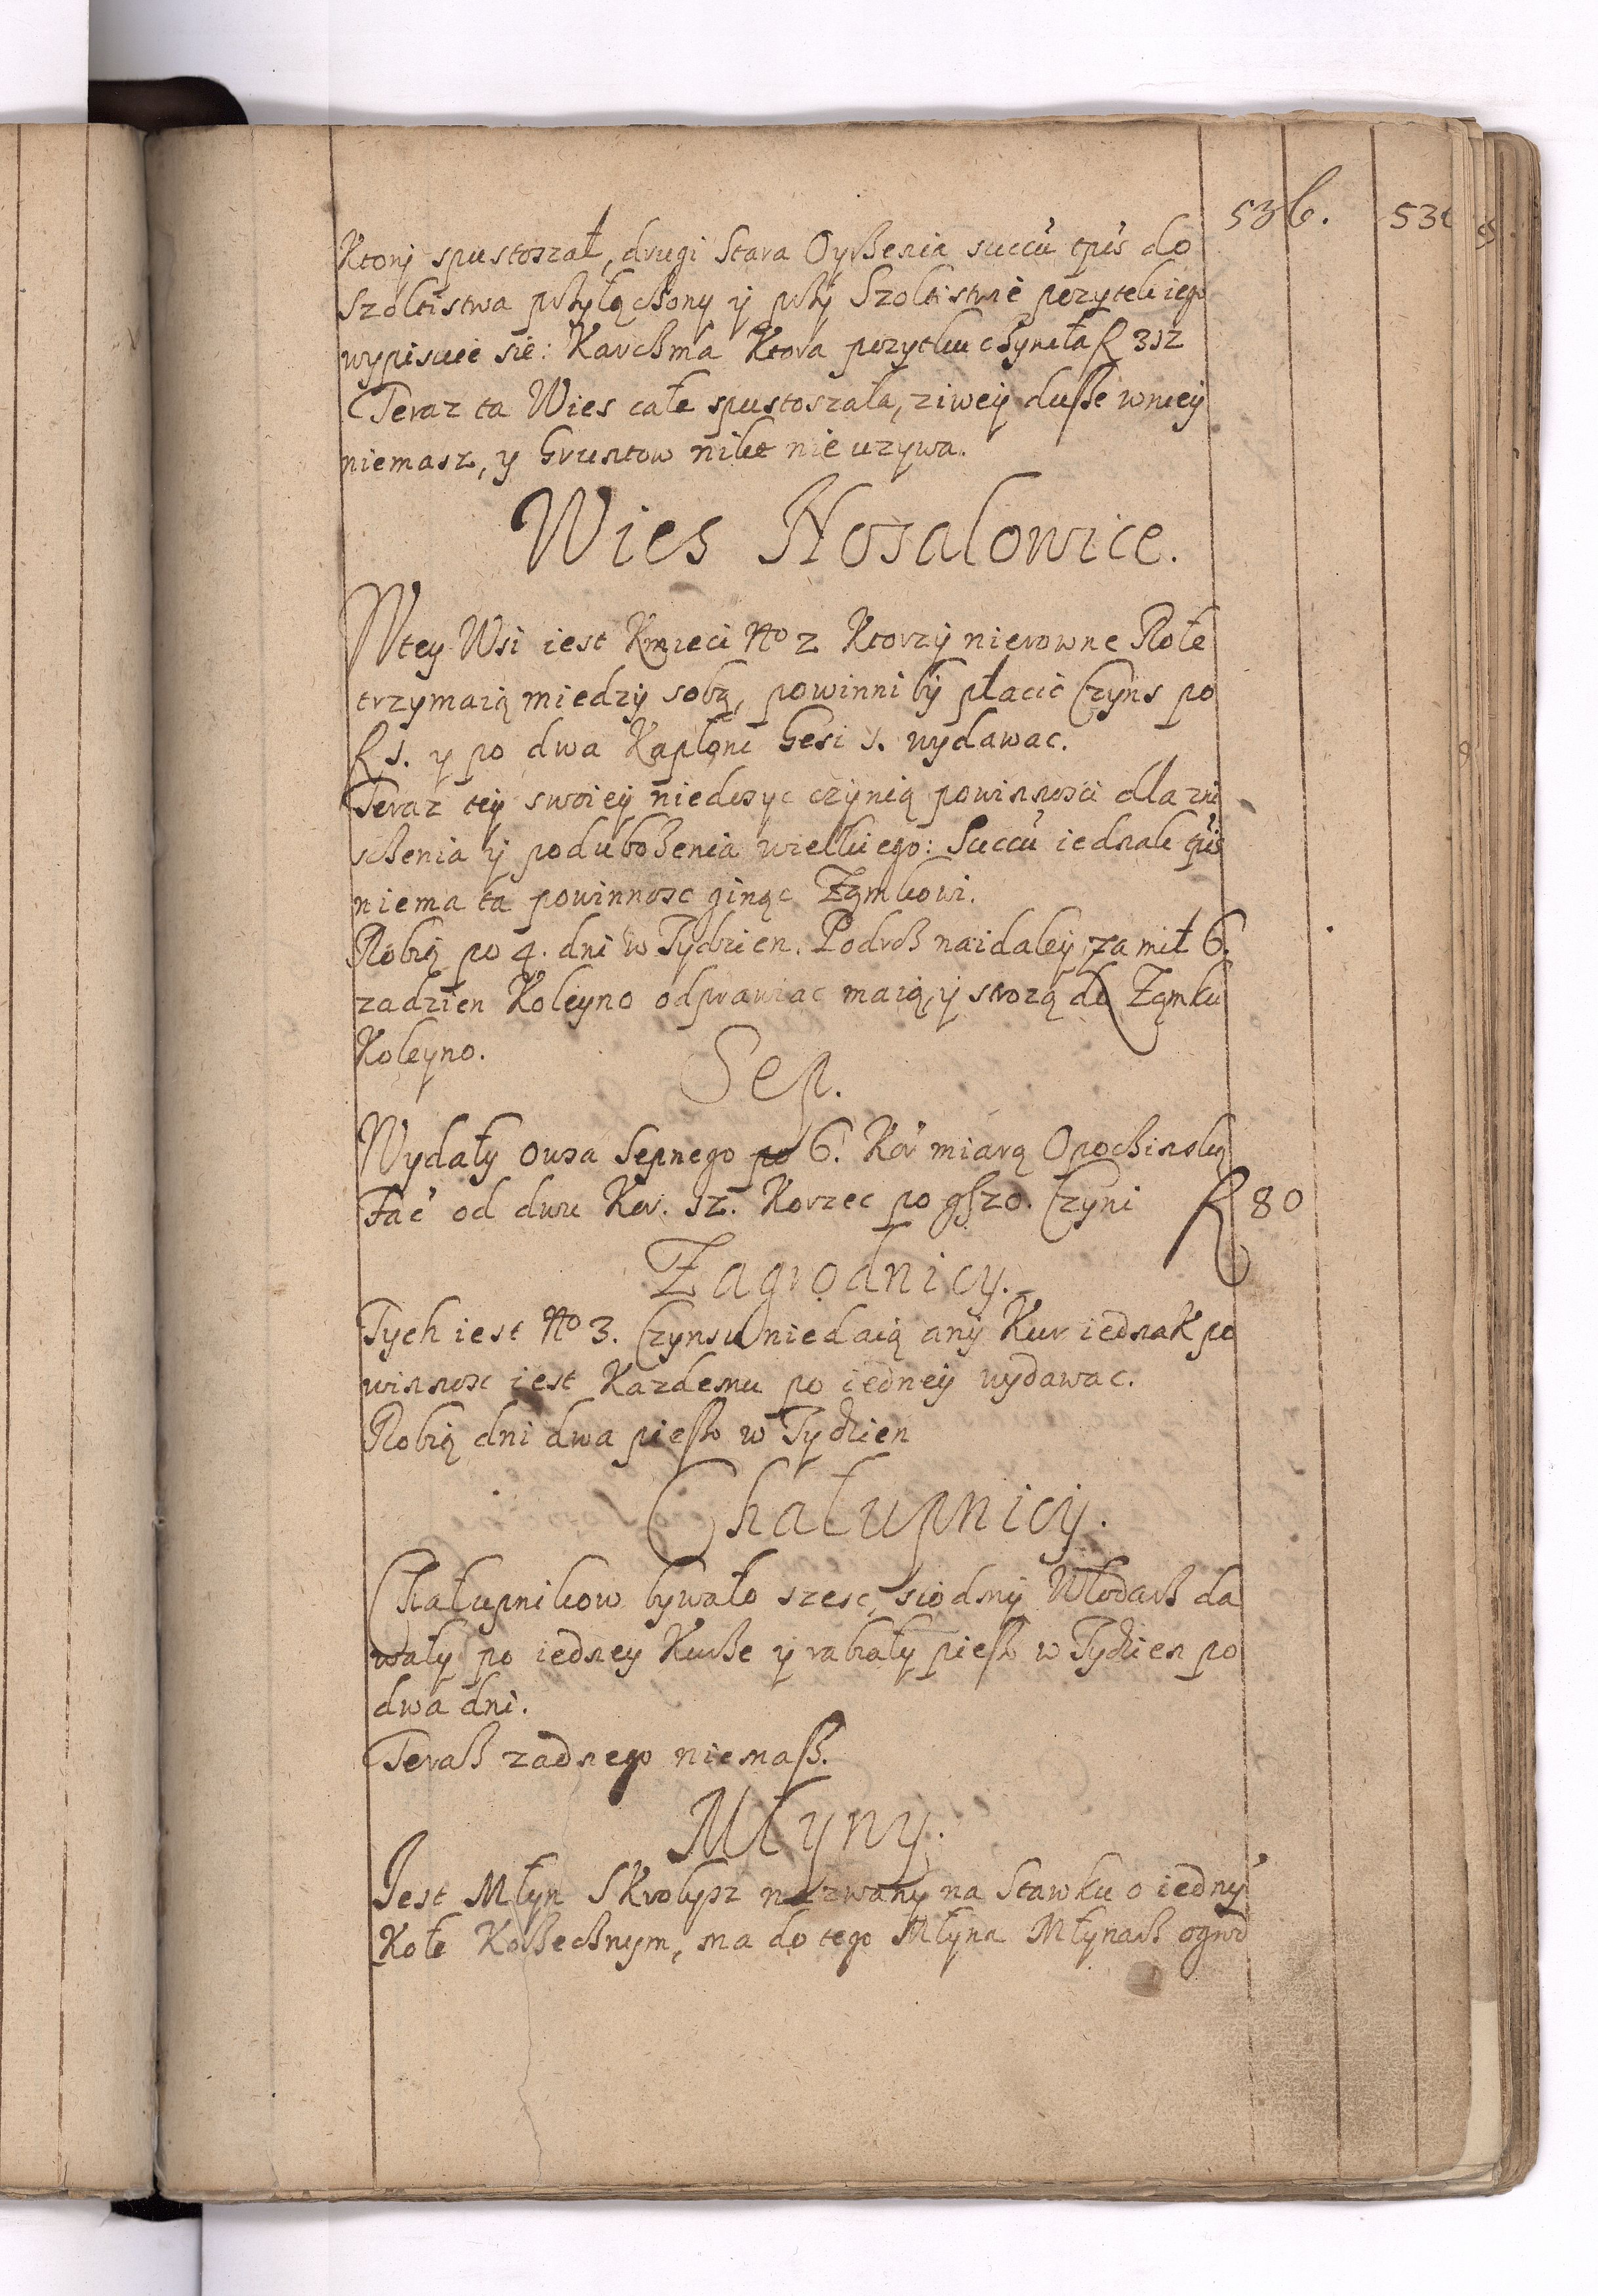 536. 53
Ktory spustoszał, drugi Stara Oyßenia succu' tp͞us do
Szoltistwa pßyłączony ÿ pßÿ Szoltistwie pozytek iego
wypisuie sie: Karcßma Ktora pozytku cßyniła R 312
Teraz ta Wies cale spustoszała, ziwey dusße wniey
niemasz, y Gruntow nikt nie uzywa.
Wies Nosalowice.
Wtey Wsi iest Kmieci No 2 Ktorzÿ nierowne Role
trzymaią miedzÿ sobą, powinni bÿ płacic Czyns po
R 1. y po dwa Kapłoni Gesi 1. wydawac.
Teraz teÿ swoieÿ niedosyc czynią powinnosci dla zni
scßenia ÿ poduboßenia wielkiego: Succu' iednak tp͞us
niema ta powinnosc ginąc Zamkowi.
Robią po 4. dni w Tydzien. Podroß naidaleÿ za mil 6.
zadzien Koleyno odprawiac maią, ÿ strozą do Zamku
Koleyno.
Sep.
Wydały Owsa Sepnego po 6. Kor' miarą Opocßinską
Fac' od dwu Kor. 12. Korzec po gf 20. Czyni R 80
Zagrodnicy.
Tych iest No 3. Czynsu niedaią anÿ Kur iednak po
winnosc iest Kazdemu po iedneÿ wydawac.
Robią dni dwa piesßo w Tydzien
Chałupnicÿ.
Chałupnikow bywało szesc, siodmÿ Włodarß da
wały po iedney Kurße ÿ rabiały piesßo w Tydzien po
dwa dni.
Teraß zadnego niemasß.
Młyny.
Iest Młyn Skrobysz nazwany na Stawku o iedny'
Kole Korßecßnym, ma do tego Młyna Młynarß ogrod